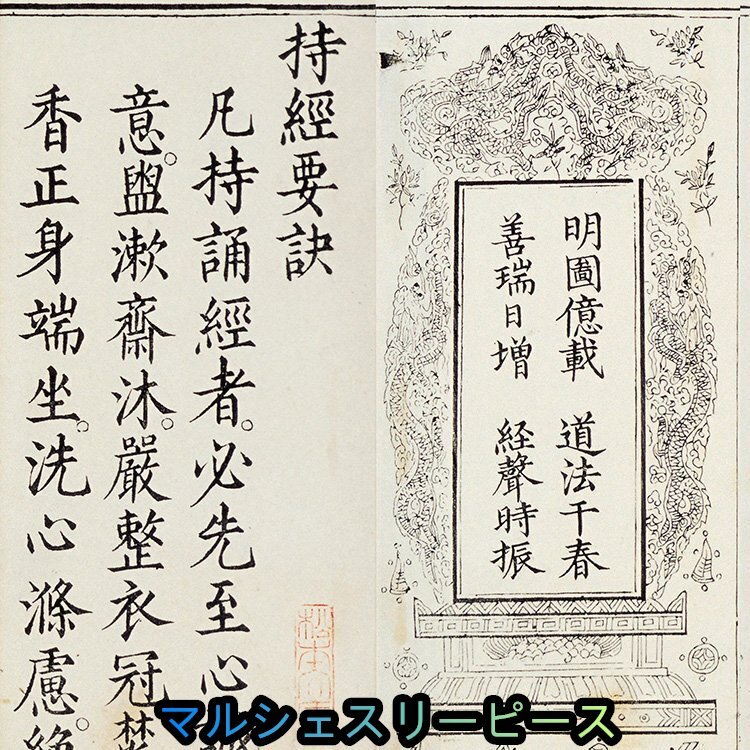 明圖億載　道法千春
善瑞日增　経聲時振
持經要訣
凡持誦經者。必先至心
意。盥漱齋沐。嚴整衣冠
香正身端坐。洗心滌慮。
マルシェスリーピース